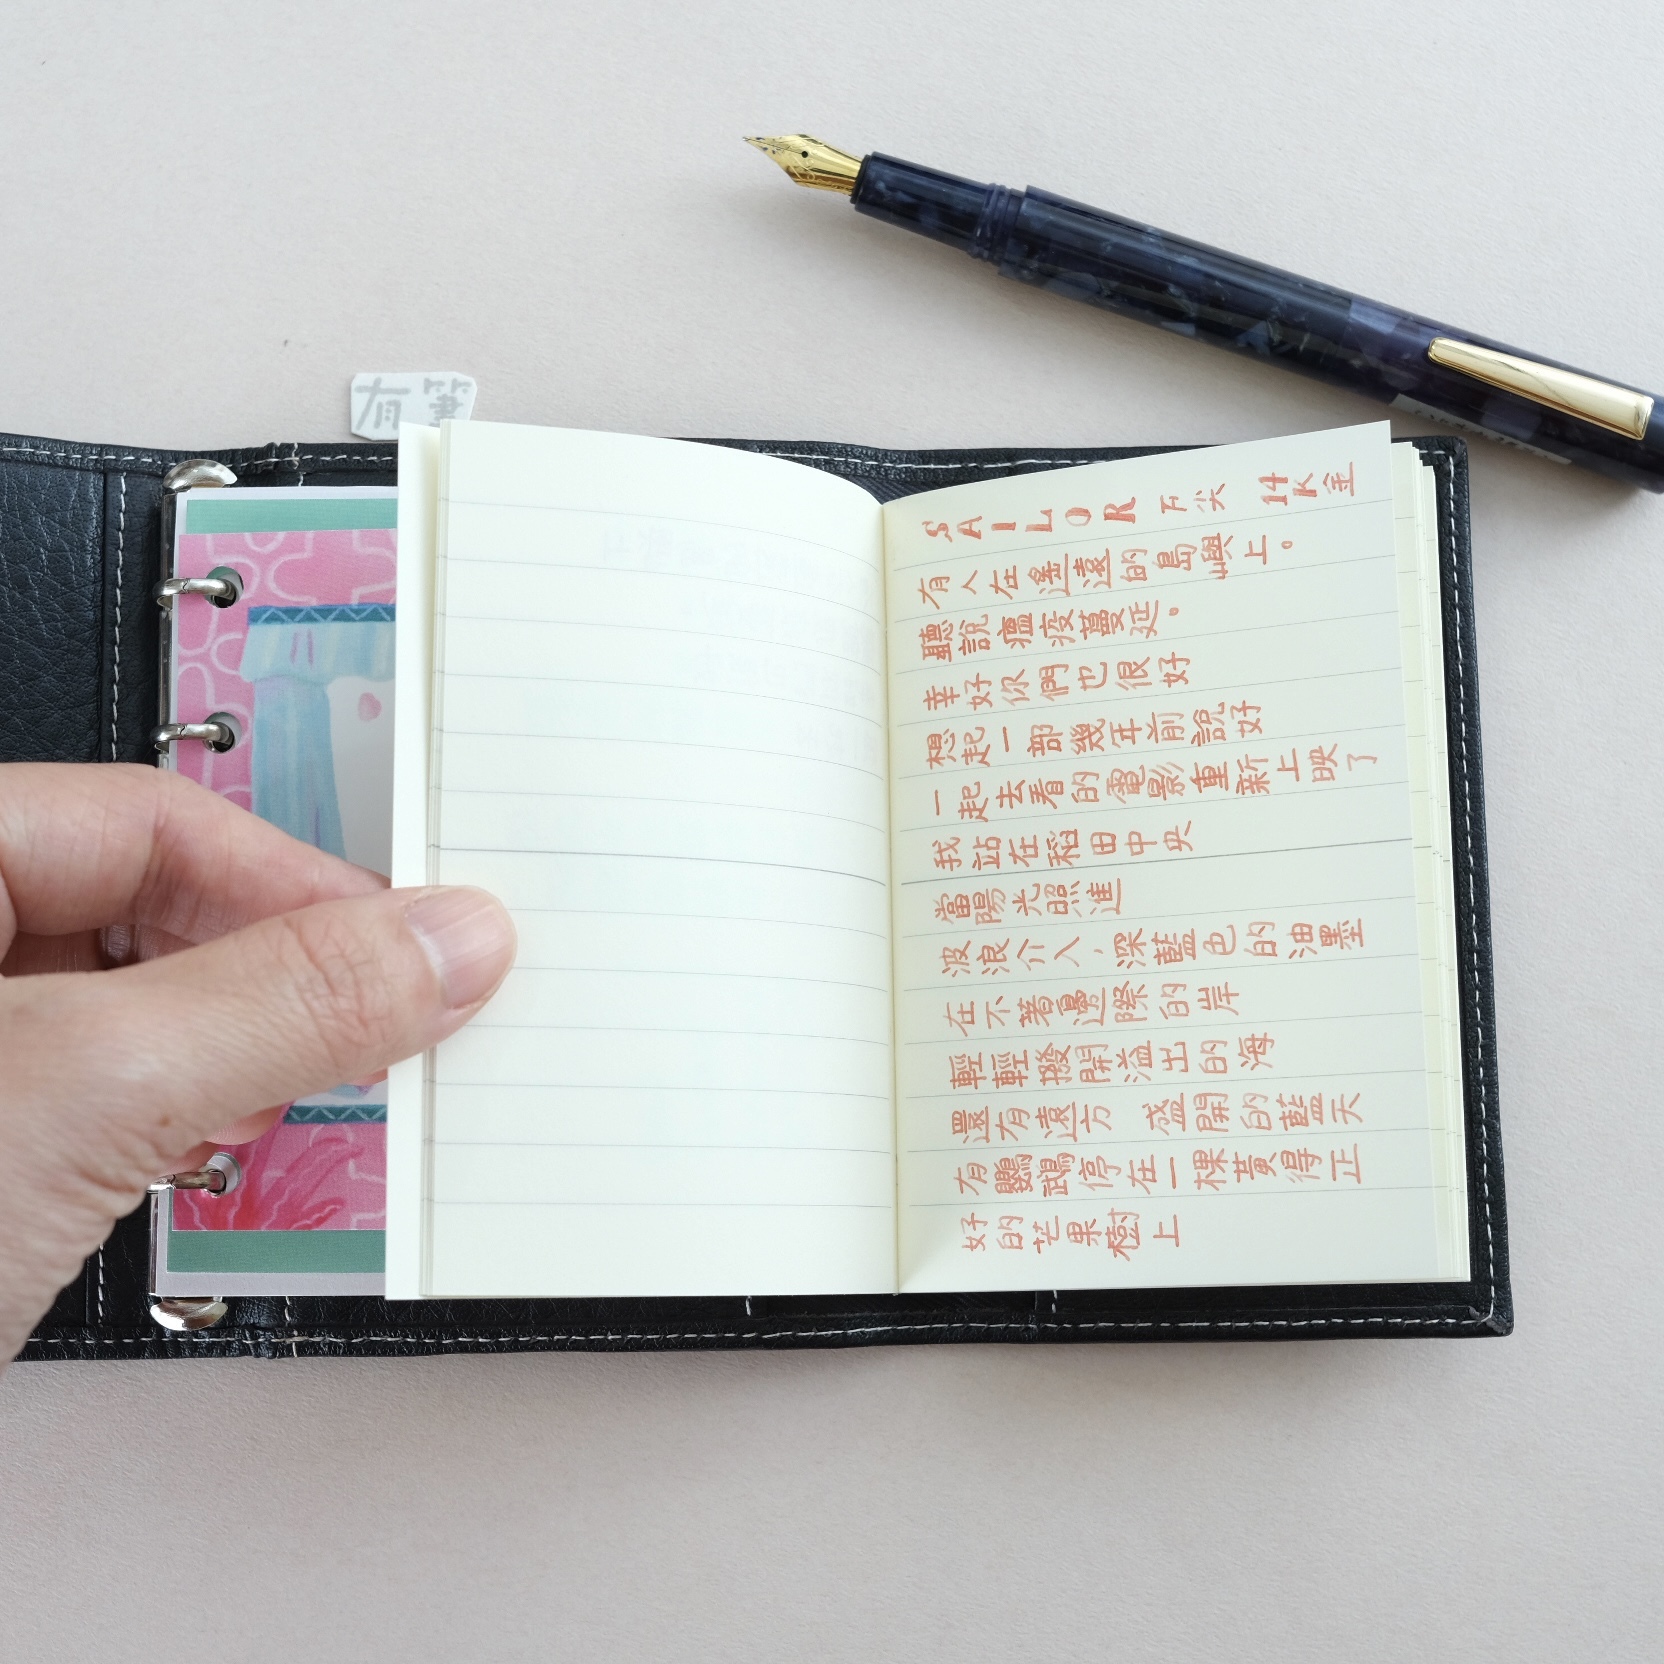 有筆
SAILOR 下尖 14K金
有人在遙遠的島嶼上。
聽說瘟疫蔓延。
幸好你們也很好
想起一部幾年前說好
一起去看的電影重新上映了
我站在稻田中央
當陽光照進
波浪介入，深藍色的油墨
在不著邊際的岸
輕輕撥開溢出的海
還有遠方 盛開的藍天
有鸚鵡停在一棵黃得正
好的芒果樹上